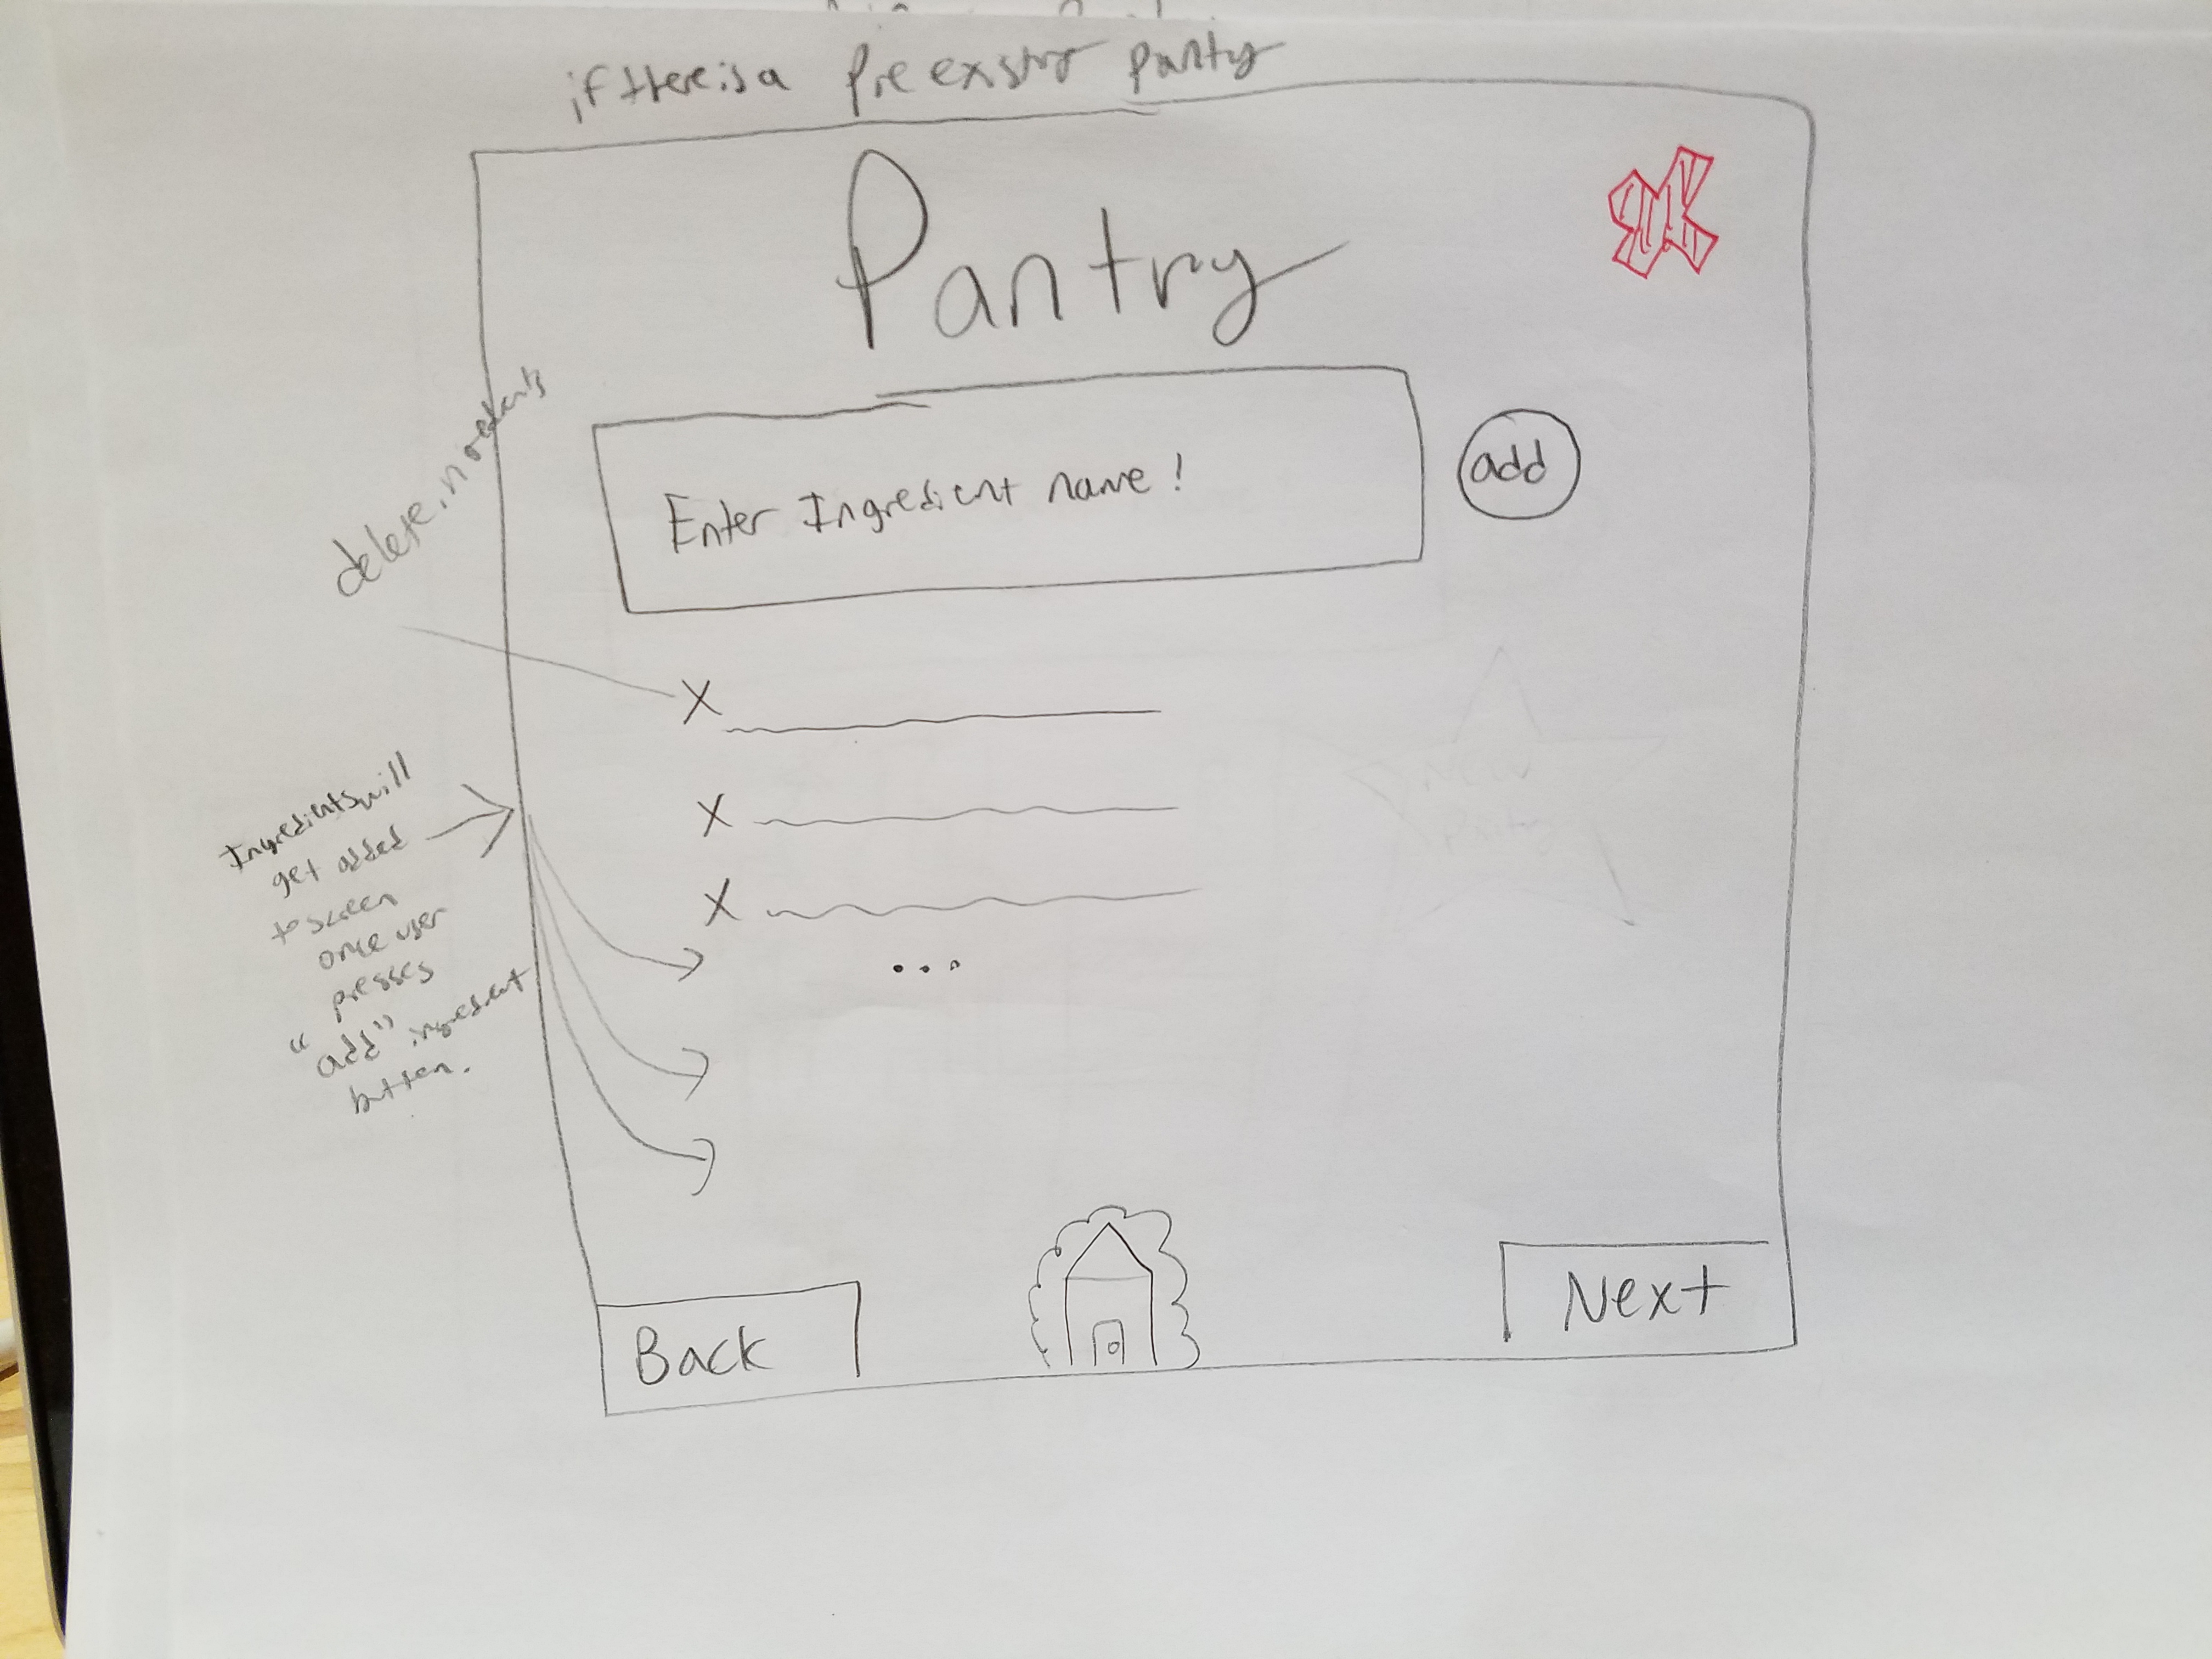 if there is a Pre existing pantry
Pantry
Enter Ingredient name!
add
X
X
X
...
delete
Ingredients will
get added
to screen
once user
presses
"add" ingredient
button.
Back
Next